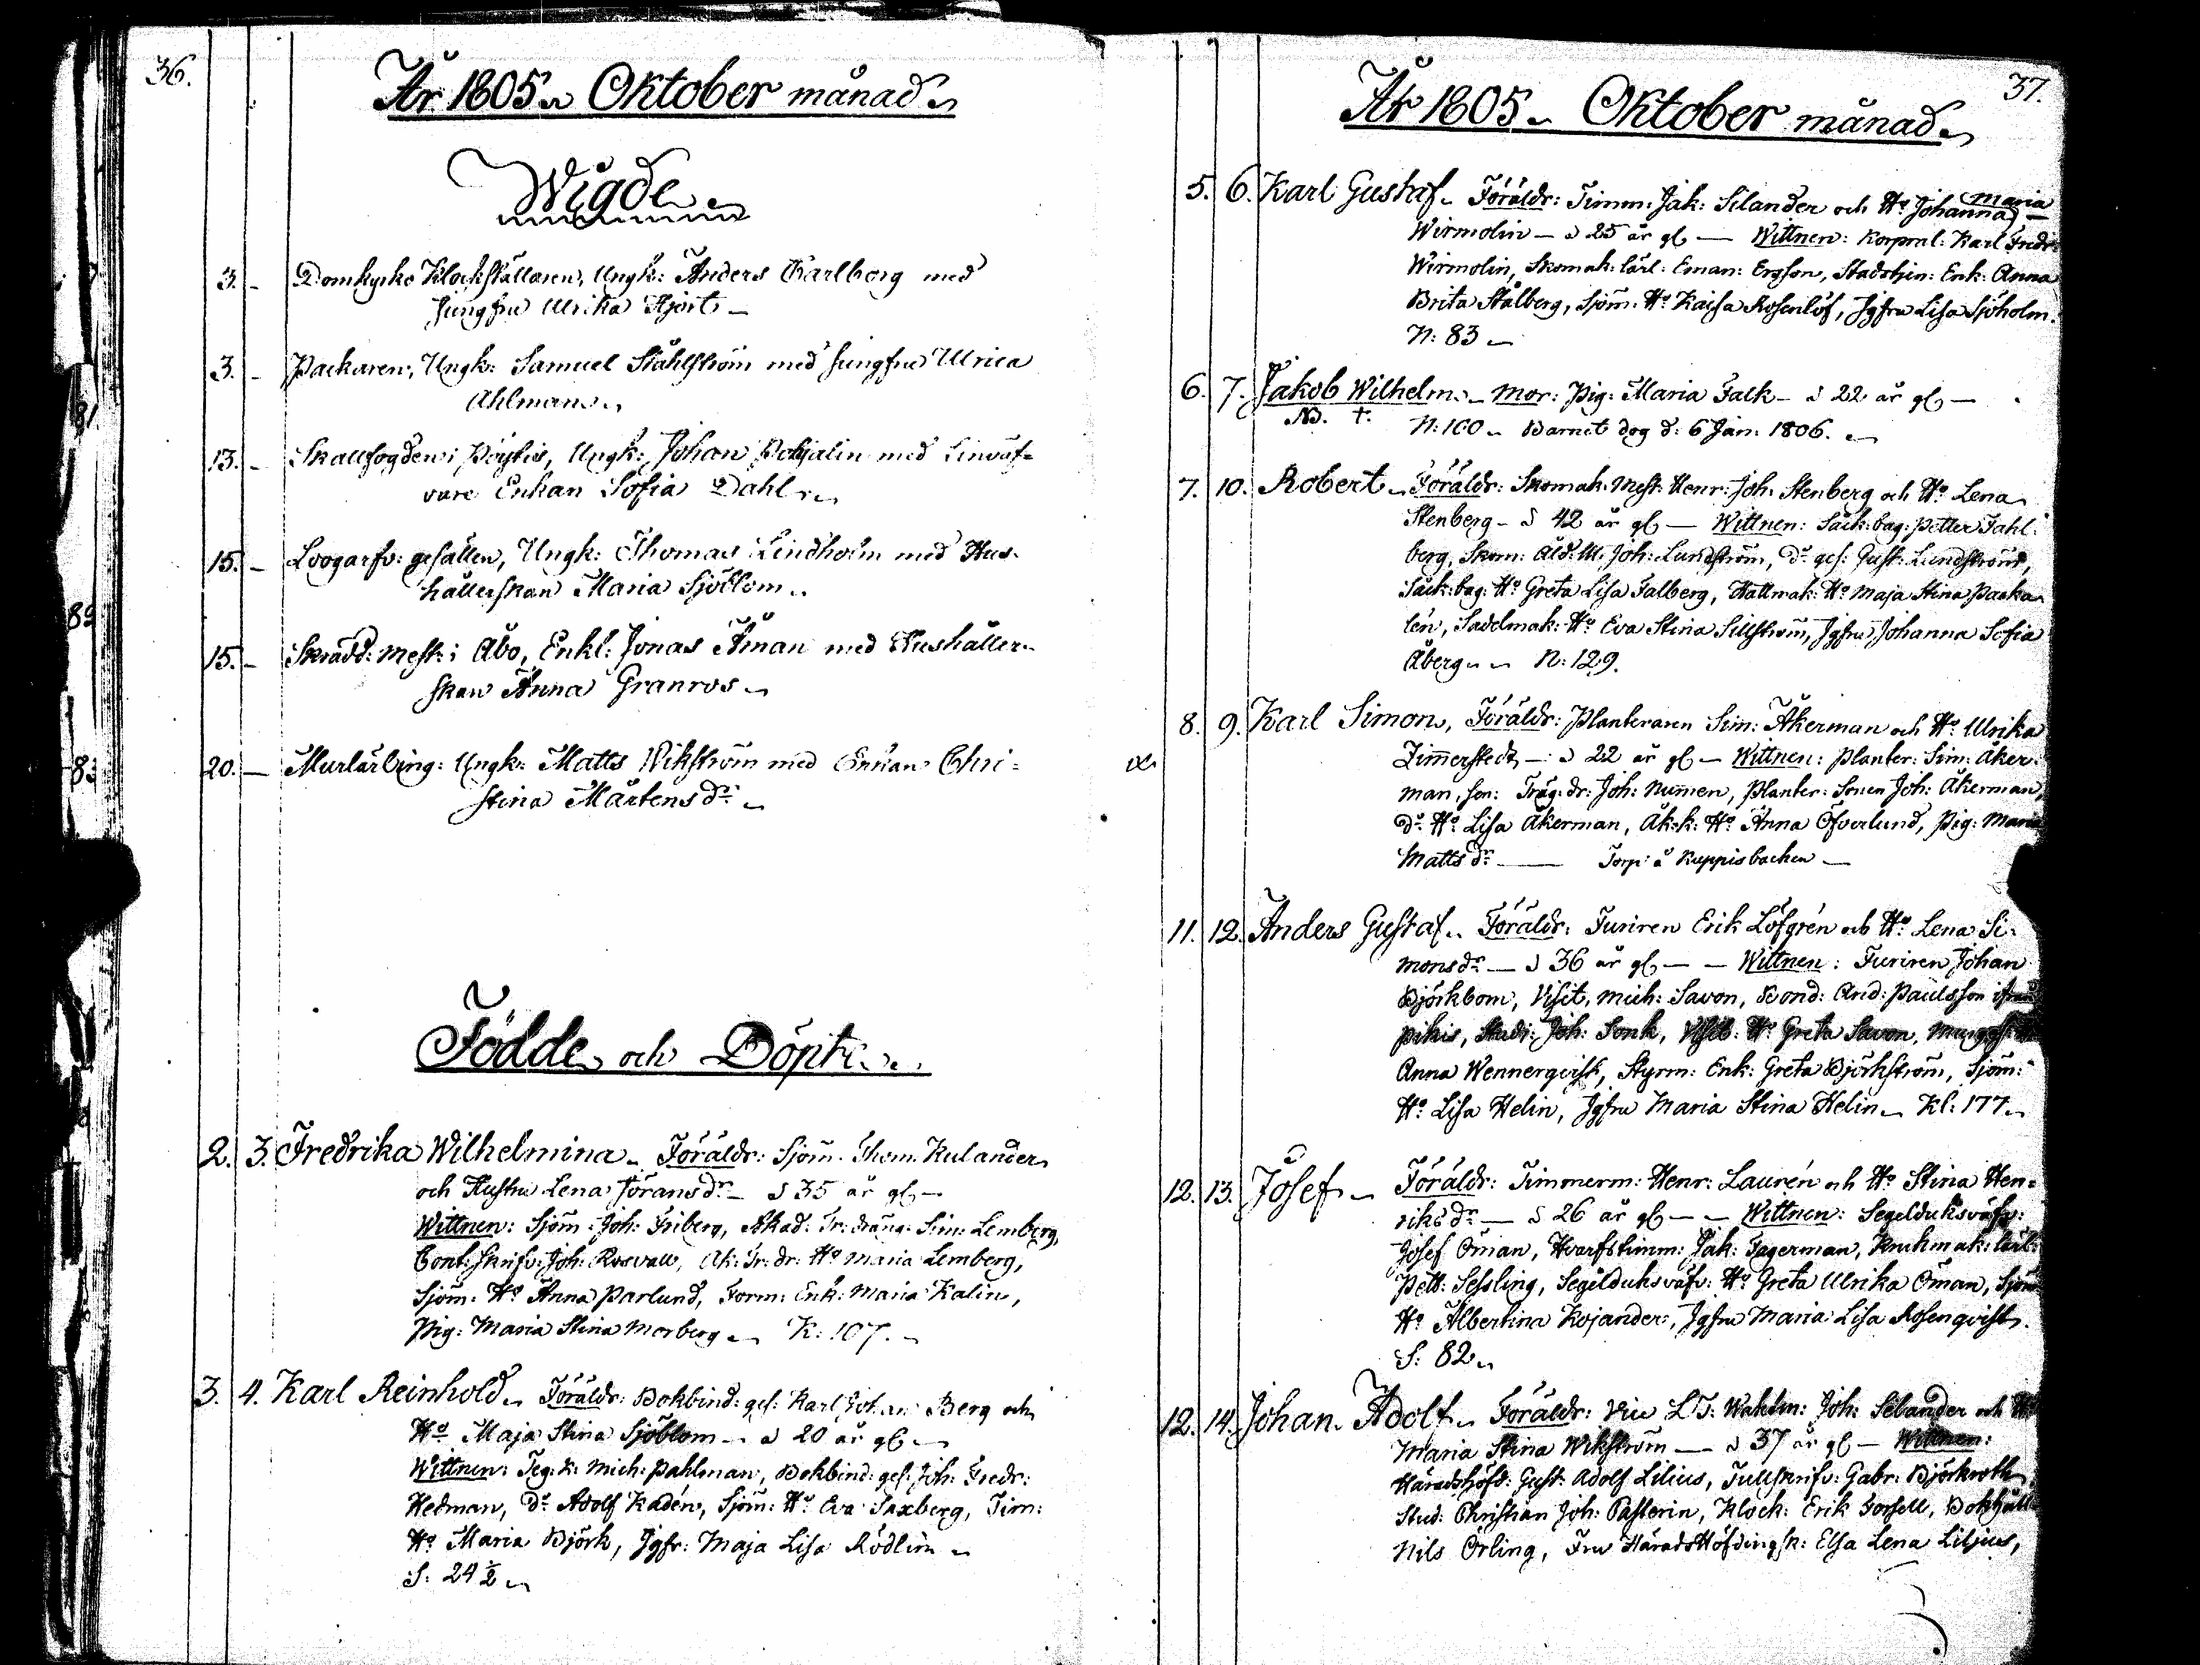 36.
År 1805. Oktober månad.
Wigde.
3. - Domkyrko Klockställaren, Ungk: Anders Carlborg med
Jungfru Ulrika Hjort -
3. - Packaren, Ungk: Samuel Ståhlström med Jungfru Ulrica
Ahlman.
13. - Skallfogden i Pöytis, Ungk: Johan Pohjalin med Linväf-
vare Enkan Sofia Dahl.
15. - Logarfv: gesällen, Ungk: Thomas Lindholm med Hus-
hållerskan Maria Sjöblom.
15. - Skrädd: Mest: i Åbo, Enkl: Jonas Åman med Hushåller-
skan Anna Granros.
20. - Murlärling: Ungk: Matts Wikström med Enkan Chri-
stina Mårtensdr.
Födde och Döpte.
2. 3. Fredrika Wilhelmina. Föräldr: Sjöm: Thom: Kulander
och Hustru Lena Jöransdr - d 35 år gl -
Wittnen: Sjöm: Joh: Friberg, Akad: Tr: dräng: Sim: Lemberg,
Cont: Skrifv: Joh: Rosvall, Ak: Tr: dr: Ho Maria Lemberg,
Sjöm: Ho Anna Parlund, Form: Enk: Maria Kalin,
Pig: Maria Stina Morberg. K: 107.
3. 4. Karl Reinhold. Föräldr: Bokbind: ges: Karl Johan Berg och
Ho Maja Stina Sjöblom - d 20 år gl -
Wittnen: Teg: k: Mich: Pahlman, Bokbind: ges: Joh: Fredr:
Hedman, Do Adolf Kadén, Sjöm: Ho Eva Saxberg, Tim:
Ho Maria Björk, Jgfr: Maja Lisa Rödlin
S: 24 1/2
37.
År 1805. Oktober månad.
5. 6. Karl Gustaf. Föräldr: Timm: Jak: Silander och Ho (Maria Johanna) -
Wirmolin - d 25 år gl - Wittnen: Korpral: Karl Fredr:
Wirmolin, Skomak: lärl: Eman: Ergson, Stadstjen: Enk: Anna
Brita Stålberg, Sjöm: Ho Kajsa Rosenlöf, Jgfru Lisa Sjöholm.
N: 83
6. 7. Jakob Wilhelm. Mor: Pig: Maria Falk - d 22 år gl -
NB. †. N: 100. Barnet dog d: 6 Jan: 1806.
7. 10. Robert. Föräldr: Skomak: Mest: Henr: Joh: Stenberg och Ho Lena
Stenberg - d 42 år gl - Wittnen: Säck: bag: Petter Fahl-
berg, Skom: Åld: M: Joh: Lundström, Do ges: Gust: Lundström,
Säck: bag: Ho Greta Lisa Falberg, Hattmak: Ho Maja Stina Packa-
lén, Sadelmak: Ho Eva Stina Sillström, Jgfru Johanna Sofia
Åberg. N: 129.
8. 9. Karl Simon, Föräldr: Planteraren Sim: Åkerman och Ho Ulrika
Zimerstedt - d 22 år gl - Wittnen: Planter: Sim: Åker-
man, sen: Träg: dr: Joh: Numen, Planter: Sonen Joh: Åkerman,
Do Ho Lisa Åkerman, Åk: k: Ho Anna Öfverlund, Pig: Maria
Mattsdr - Torp: å Kuppisbacken -
11. 12. Anders Gustaf. Föräldr: Furiren Erik Löfgrén och Ho Lena Si-
monsdr - d 36 år gl - - Wittnen: Furiren Johan
Björkbom, Visit, Mich: Savon, Bond: And: Paulsson ifrån
Pikis, Studr: Joh: Sonk, Visit: Ho Greta Savon,
Anna Wennerqvist, Styrm: Enk: Greta Björkström, Sjöm:
Ho Lisa Helin, Jgfru Maria Stina Helin. Kl: 177.
12. 13. Josef. Föräldr: Timmerm: Henr: Laurén och Ho Stina Hen-
riksdr - d 26 år gl - - Wittnen: Segelduksväfv:
Josef Öman, Hvarfstimm: Jak: Fagerman, Krukmak: lärl:
Pett: Sessling, Segelduksväfv: Ho Greta Ulrika Öman, Sjöm
Ho Albertina Kojander, Jgfru Maria Lisa Rosenqvist.
S: 82
12. 14. Johan Adolf. Föräldr: Vice L.T: Wahlm: Joh: Selander och Ho
Maria Stina Wikström - d 37 år gl - Wittnen:
Häradshöfd: Gust: Adolf Lilius, Tullskrifv: Gabr: Björkroth
Stud: Christian Joh: Pasterin, Klock: Erik Forsell, Bokhåll
Nils Örling, Fru HäradsHöfdingsk: Elsa Lena Liljus,
81.
82
83